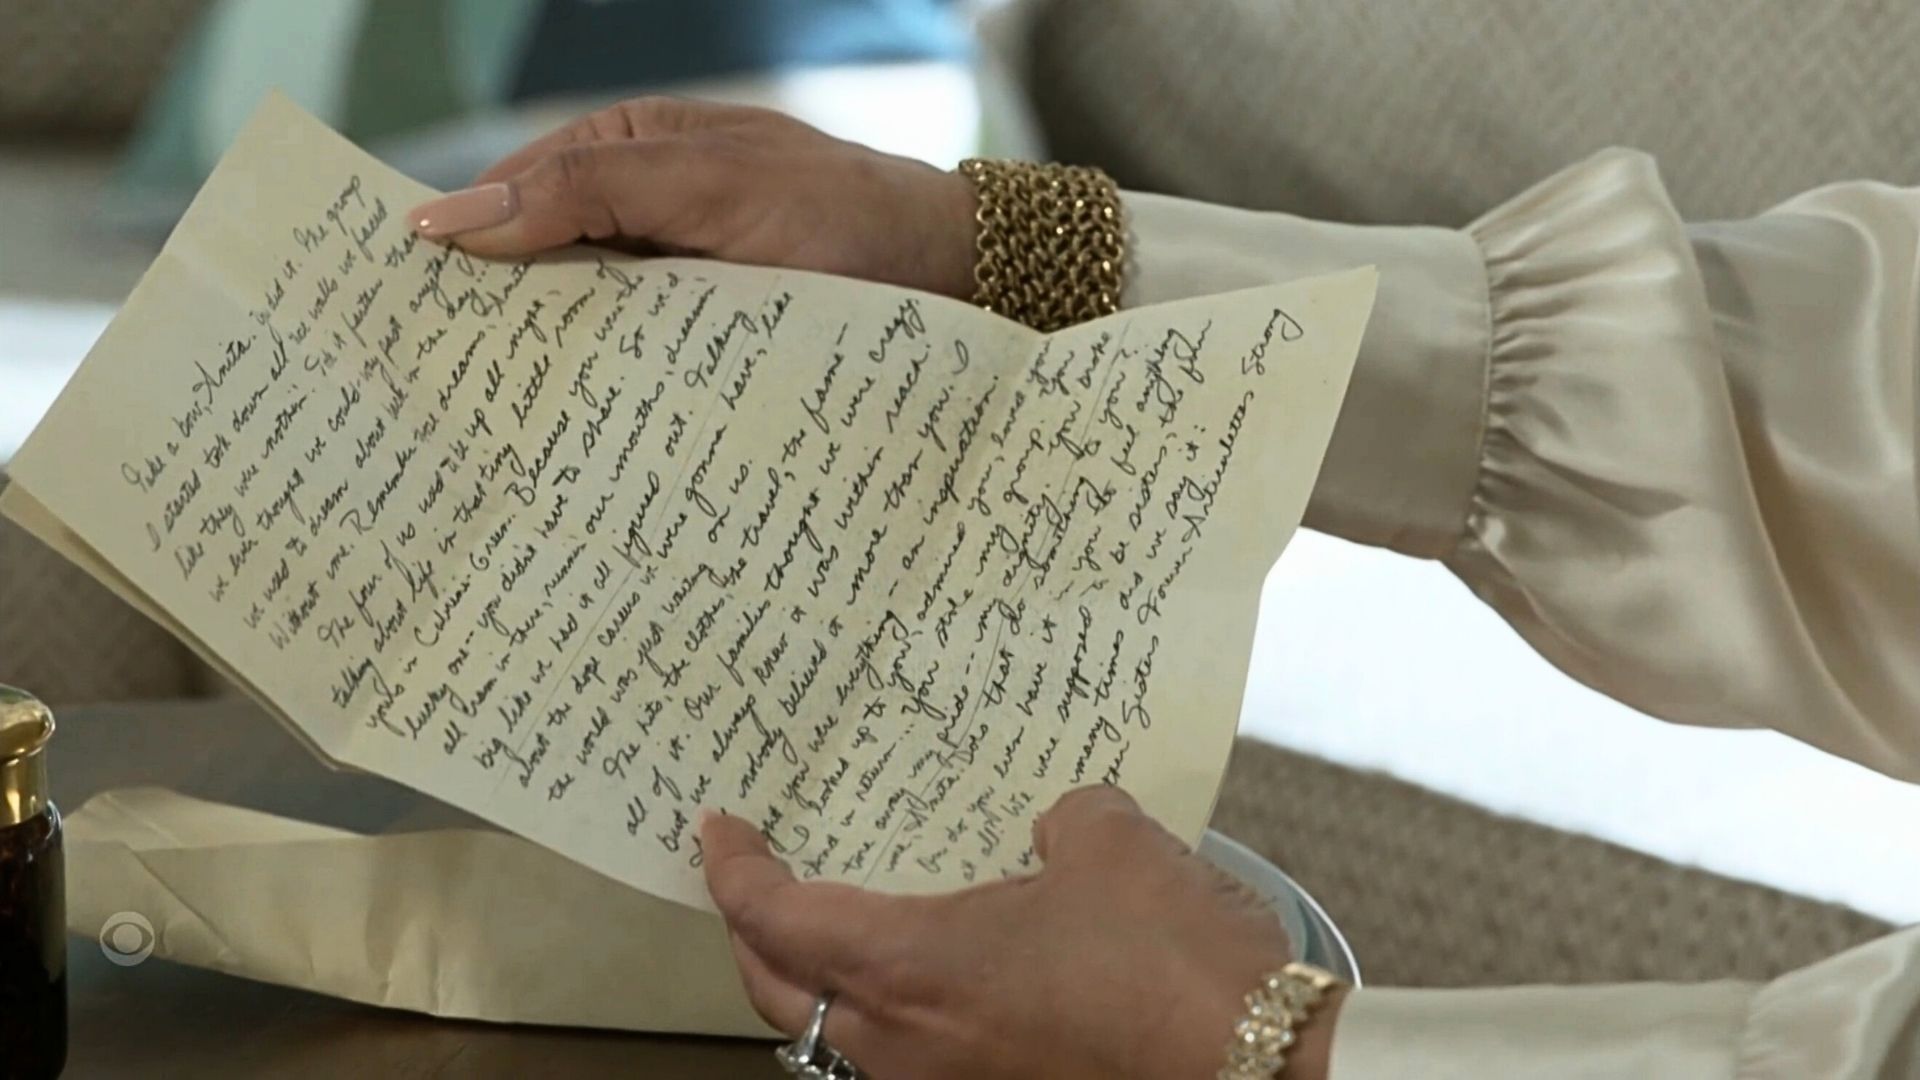 Take a bow, Anita. You did it. The group
I started took down all the walls we faced
like they were nothin'. Took it further than
we ever thought we could - way past anything
we used to dream about back in the day...
Without me. Remember those dreams, Anita
The four of us used to be up all night,
talking about life in that tiny little room of
yours in Cabrini-Green. Because you were the
lucky one -- you didn't have to share. So we'd
all cram in there, runnin' our mouths, dreamin'
big like we had it all figured out. Talking
about the dope careers we were gonna have, like
the world was just waiting on us.
The hits, the clothes, the travel, the fame -
all of it. Our families thought we were crazy.
but we always knew it was within reach.
nobody believed it more than you. I
thought you were everything - an inspiration.
I looked up to you, admired you, loved you
And in return... You stole my group. You
tore away my pride -- my dignity. You broke
me, Anita. Does that do something to you?
Or do you even have it in you to feel anything
at all? We were supposed to be sisters, the four
many times did we say it:
Sisters Forever Articulettes Strong